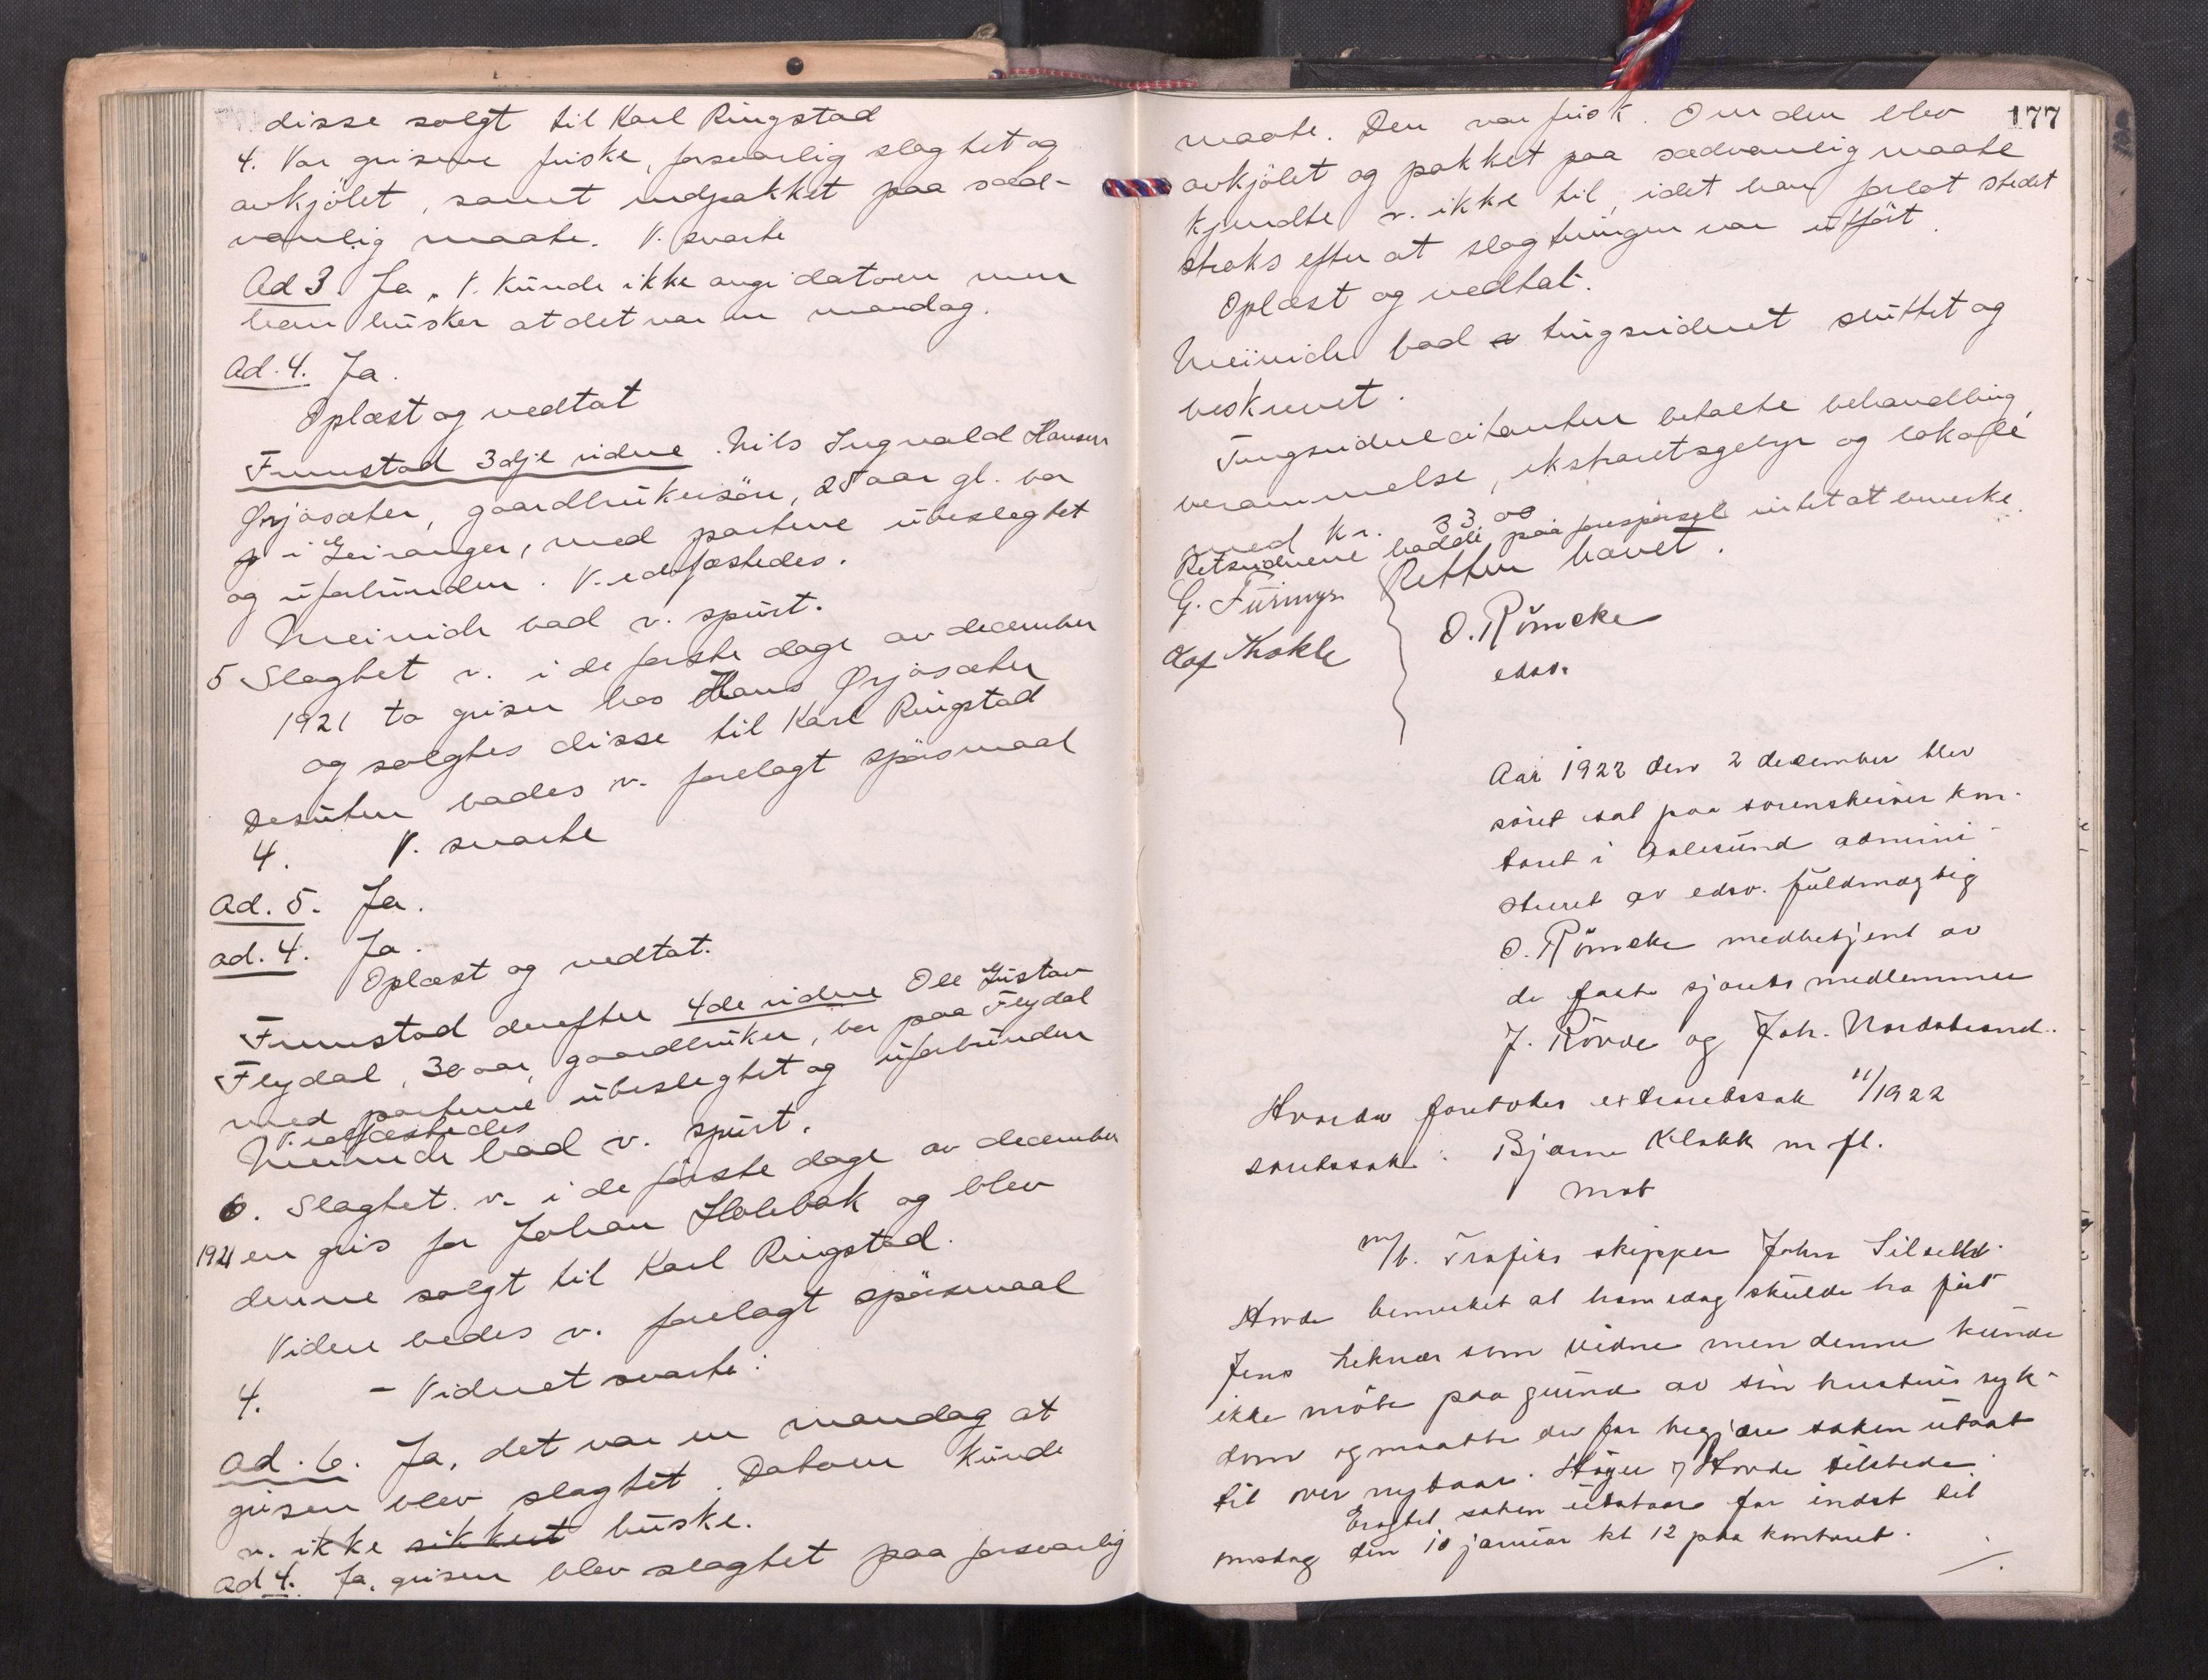 disse solgt til Karl Ringstad
4. Var grisene friske, forsvarlig slagtet og
avkjölet, samt indpakket paa sæd-
vanlig maate. V. svarte
Ad 3 Ja. V. kunde ikke angi datoen men
han husker at det var en mandag.
Ad. 4. Ja.
Oplæst og vedtat
Fremstod 3dje vidne. Nils Ingvald Hansen
Ørjasæter, gaardbrukersön, 25 aar gl. bor
i Geiranger, med partene ubeslegtet
og uforbunden. V. edfæstedes.
Meinich bad v. spurt.
5 Slagtet v. i de første dage av december
1921 to griser hos Hans Ørjasæter
og solgtes disse til Karl Ringstad
Desuten bades v. forelagt spörsmaal
4. V. svarte
Ad. 5. Ja.
ad. 4. Ja.
Oplæst og vedtat.
Fremstod derefter 4de vidne Ole Gustav
Flydal, 30 aar, gaardbruker, bor paa Flydal
med partene ubeslegtet og uforbunden
V. edfæstedes
Meinich bad v. spurt.
6. Slagtet v. i de første dage av december
1921 en gris for Johan Holebak og blev
denne solgt til Karl Ringstad.
Videre bedes v. forelagt spörsmaal
4. - Vidnet svarte:
Ad. 6. Ja, det var en mandag at
grisen blev slagtet. Datoen kunde
v. ikke sikkert huske.
Ad 4. Ja, grisen blev slagtet paa forsvarlig
177
maate. Den var frisk. Om den blev
avkjölet og pakket paa sædvanlig maate
kjendte v. ikke til, idet han forlot stedet
straks efter at slagtningen var utfört.
Oplæst og vedtat.
Meinich bad tingsvidnet sluttet og
beskrevet.
Tingsvidnecitanten betalte behandling,
berammelse, ekstraretsgebyr og lokale
med kr. 33.00
Retsvidnene hadde paa forespörsel intet at bemerke.
Retten hævet.
G. Furmyr
Olaf Kokle
O. Römcke
edsv.
Aar 1922 den 2 december blev
söret sat paa sorenskriver kon-
toret i Aalesund admini-
streret av edsv. fuldmægtig
O. Römcke medbetjent av
de faste sjörets medlemmer
J. Rövde og Joh. Nordstrand.
Hvorda foretokes extraretssak 11/1922
söretssak: Bjarne Klokk m fl.
mot
m/b. Trafiks skipper John Silseth.
Hovde bemerket at han idag skulde ha fört
Jens Leknes som vidne men denne kunde
ikke möte paa grund av sin hustrus syk-
dom og maatte der for begjære saken utsat
til over nytaar. Höyer og Hovde tilstede.
Eragtet saken utstaar for indst til
onsdag den 10 januar kl 12 paa kontoret.